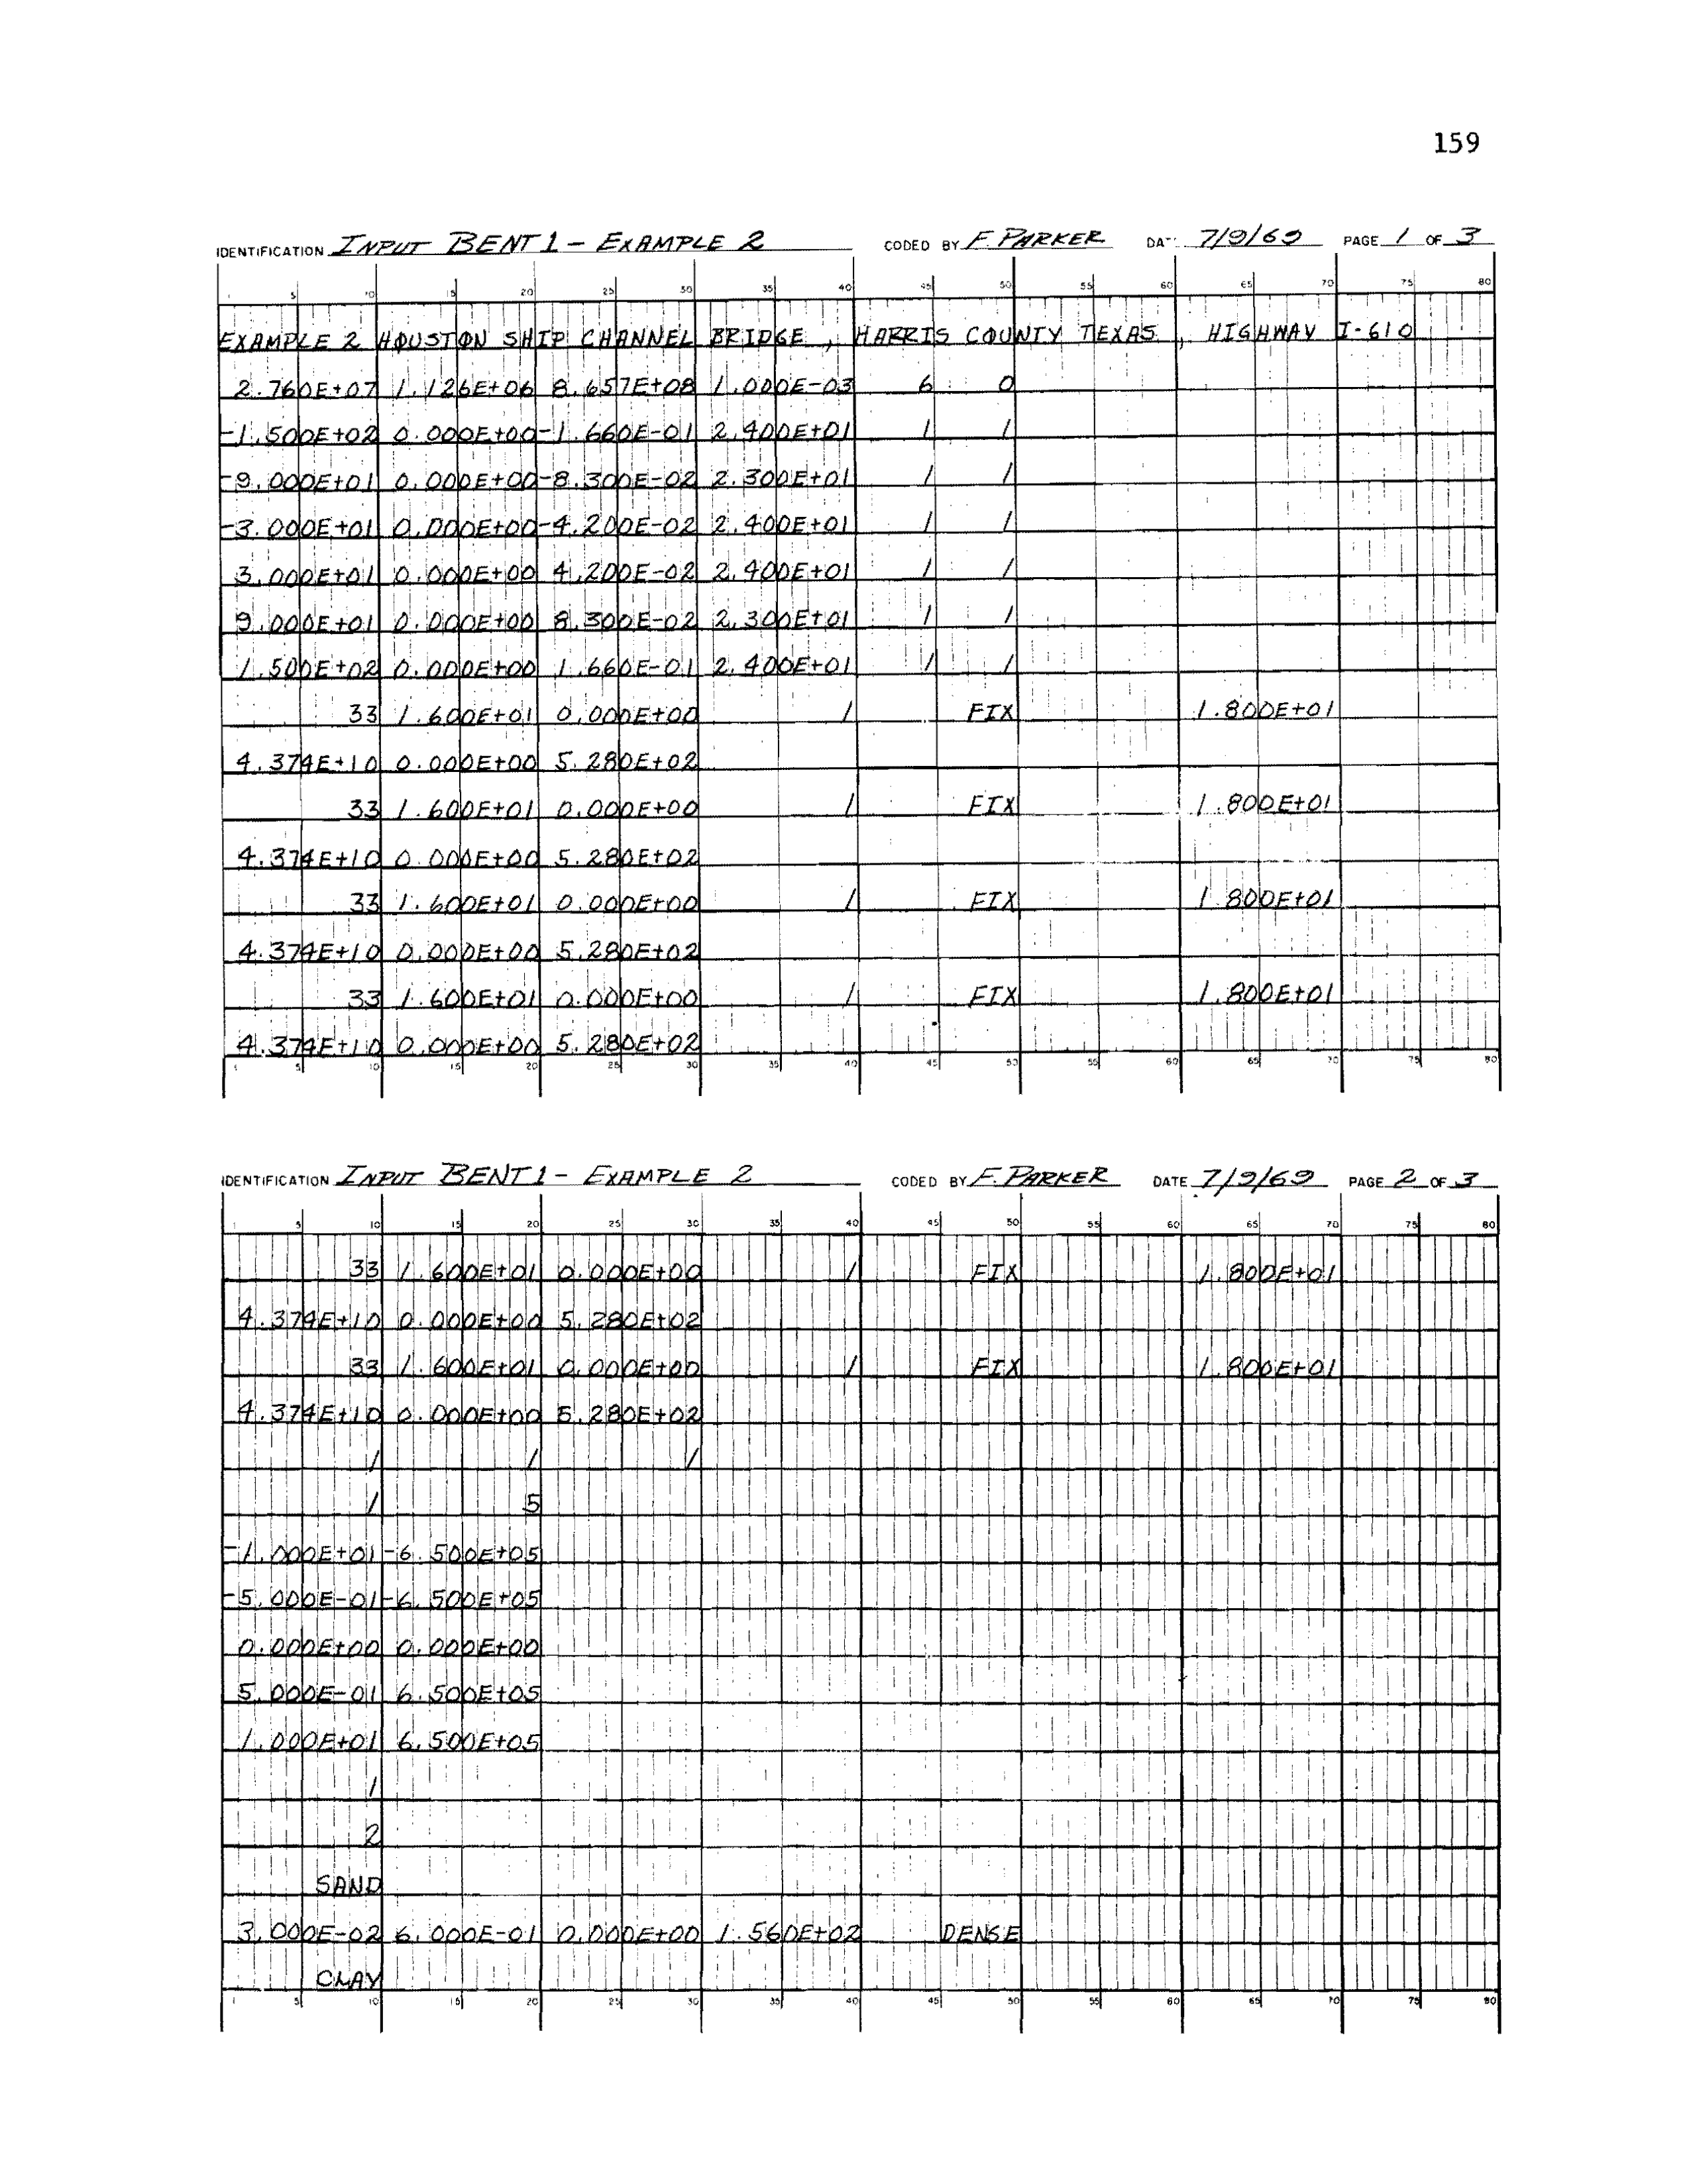 159
IDENTIFICATION INPUT BENT 1 - EXAMPLE 2 CODED BY F. PARKER DAT: 7/9/69 PAGE 1 OF 3
1 5 10 15 20 25 30 35 40 45 50 55 60 65 70 75 80
EXAMPLE 2 HOUSTON SHIP CHANNEL BRIDGE , HARRIS COUNTY TEXAS , HIGHWAY I-610
2.760E+07 1.126E+06 8.657E+08 1.000E-03 6 0
-1.500E+02 0.000E+00 -1.660E-01 2.400E+01 1 1
-9.000E+01 0.000E+00 -8.300E-02 2.300E+01 1 1
-3.000E+01 0.000E+00 -4.200E-02 2.400E+01 1 1
3.000E+01 0.000E+00 4.200E-02 2.400E+01 1 1
9.000E+01 0.000E+00 8.300E-02 2.300E+01 1 1
1.500E+02 0.000E+00 1.660E-01 2.400E+01 1 1
33 1.600E+01 0.000E+00 1 FIX 1.800E+01
4.374E+10 0.000E+00 5.280E+02
33 1.600E+01 0.000E+00 1 FIX 1.800E+01
4.374E+10 0.000E+00 5.280E+02
33 1.600E+01 0.000E+00 1 FIX 1.800E+01
4.374E+10 0.000E+00 5.280E+02
33 1.600E+01 0.000E+00 1 FIX 1.800E+01
4.374E+10 0.000E+00 5.280E+02
1 5 10 15 20 25 30 35 40 45 50 55 60 65 70 75 80
IDENTIFICATION INPUT BENT 1 - EXAMPLE 2 CODED BY F. PARKER DATE 7/9/69 PAGE 2 OF 3
1 5 10 15 20 25 30 35 40 45 50 55 60 65 70 75 80
33 1.600E+01 0.000E+00 1 FIX 1.800E+01
4.374E+10 0.000E+00 5.280E+02
33 1.600E+01 0.000E+00 1 FIX 1.800E+01
4.374E+10 0.000E+00 5.280E+02
1 1 1
1 5
-1.000E+01 -6.500E+05
-5.000E-01 -6.500E+05
0.000E+00 0.000E+00
5.000E-01 6.500E+05
1.000E+01 6.500E+05
1
2
SAND
3.000E-02 6.000E-01 0.000E+00 1.560E+02 DENSE
CLAY
1 5 10 15 20 25 30 35 40 45 50 55 60 65 70 75 80